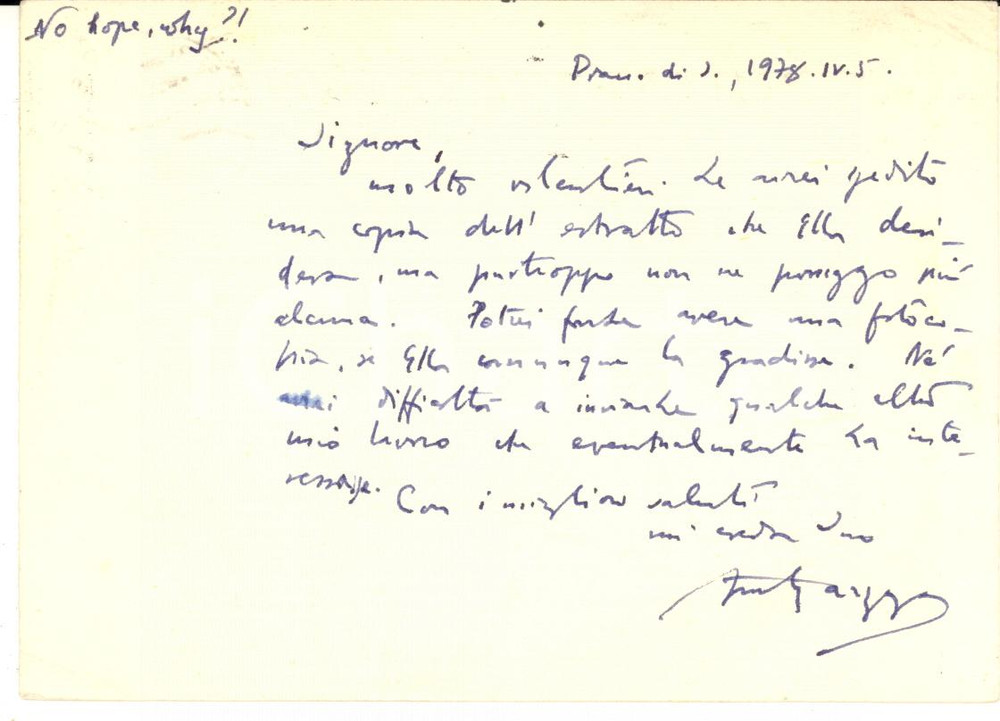 No hope, why?!
di S., 1978.IV.5.
Signore,
molto volentieri Le avrei spedito
una copia dell' estratto che Ella desi-
dera, ma purtroppo non ne posseggo più
alcuna. Potrei forse avere una fotoco-
pia, se Ella comunque la gradisse. Né
avrei difficoltà a inviarLe qualche altro
mio lavoro che eventualmente La inte-
ressasse.
Con i migliori saluti
mi creda Suo